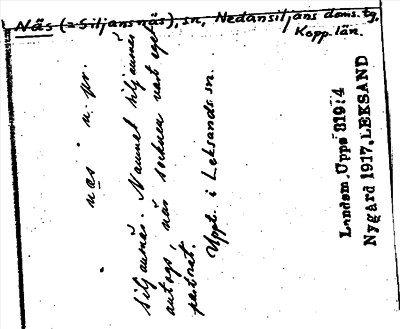 Näs (=Siljansnäs), sn, Nedansiljans doms. tg,
Kopp. län.
näs n. pr.
Siljansnäs. Namnet Siljansnäs
antogs, när socknen vart eget
pastorat.
Uppt. i Leksands sn.
Landsm. Upps 319:4
Nygård 1917. LEKSAND